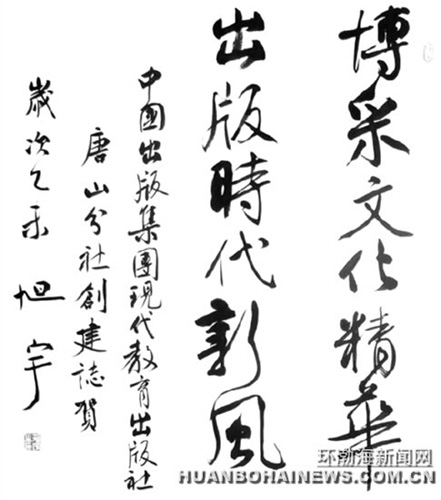 博采文化精華
出版時代新風
中國出版集團現代教育出版社
唐山分社創建誌賀
歲次乙未 旭宇
环渤海新闻网
HUANBOHAINEWS.COM.CN